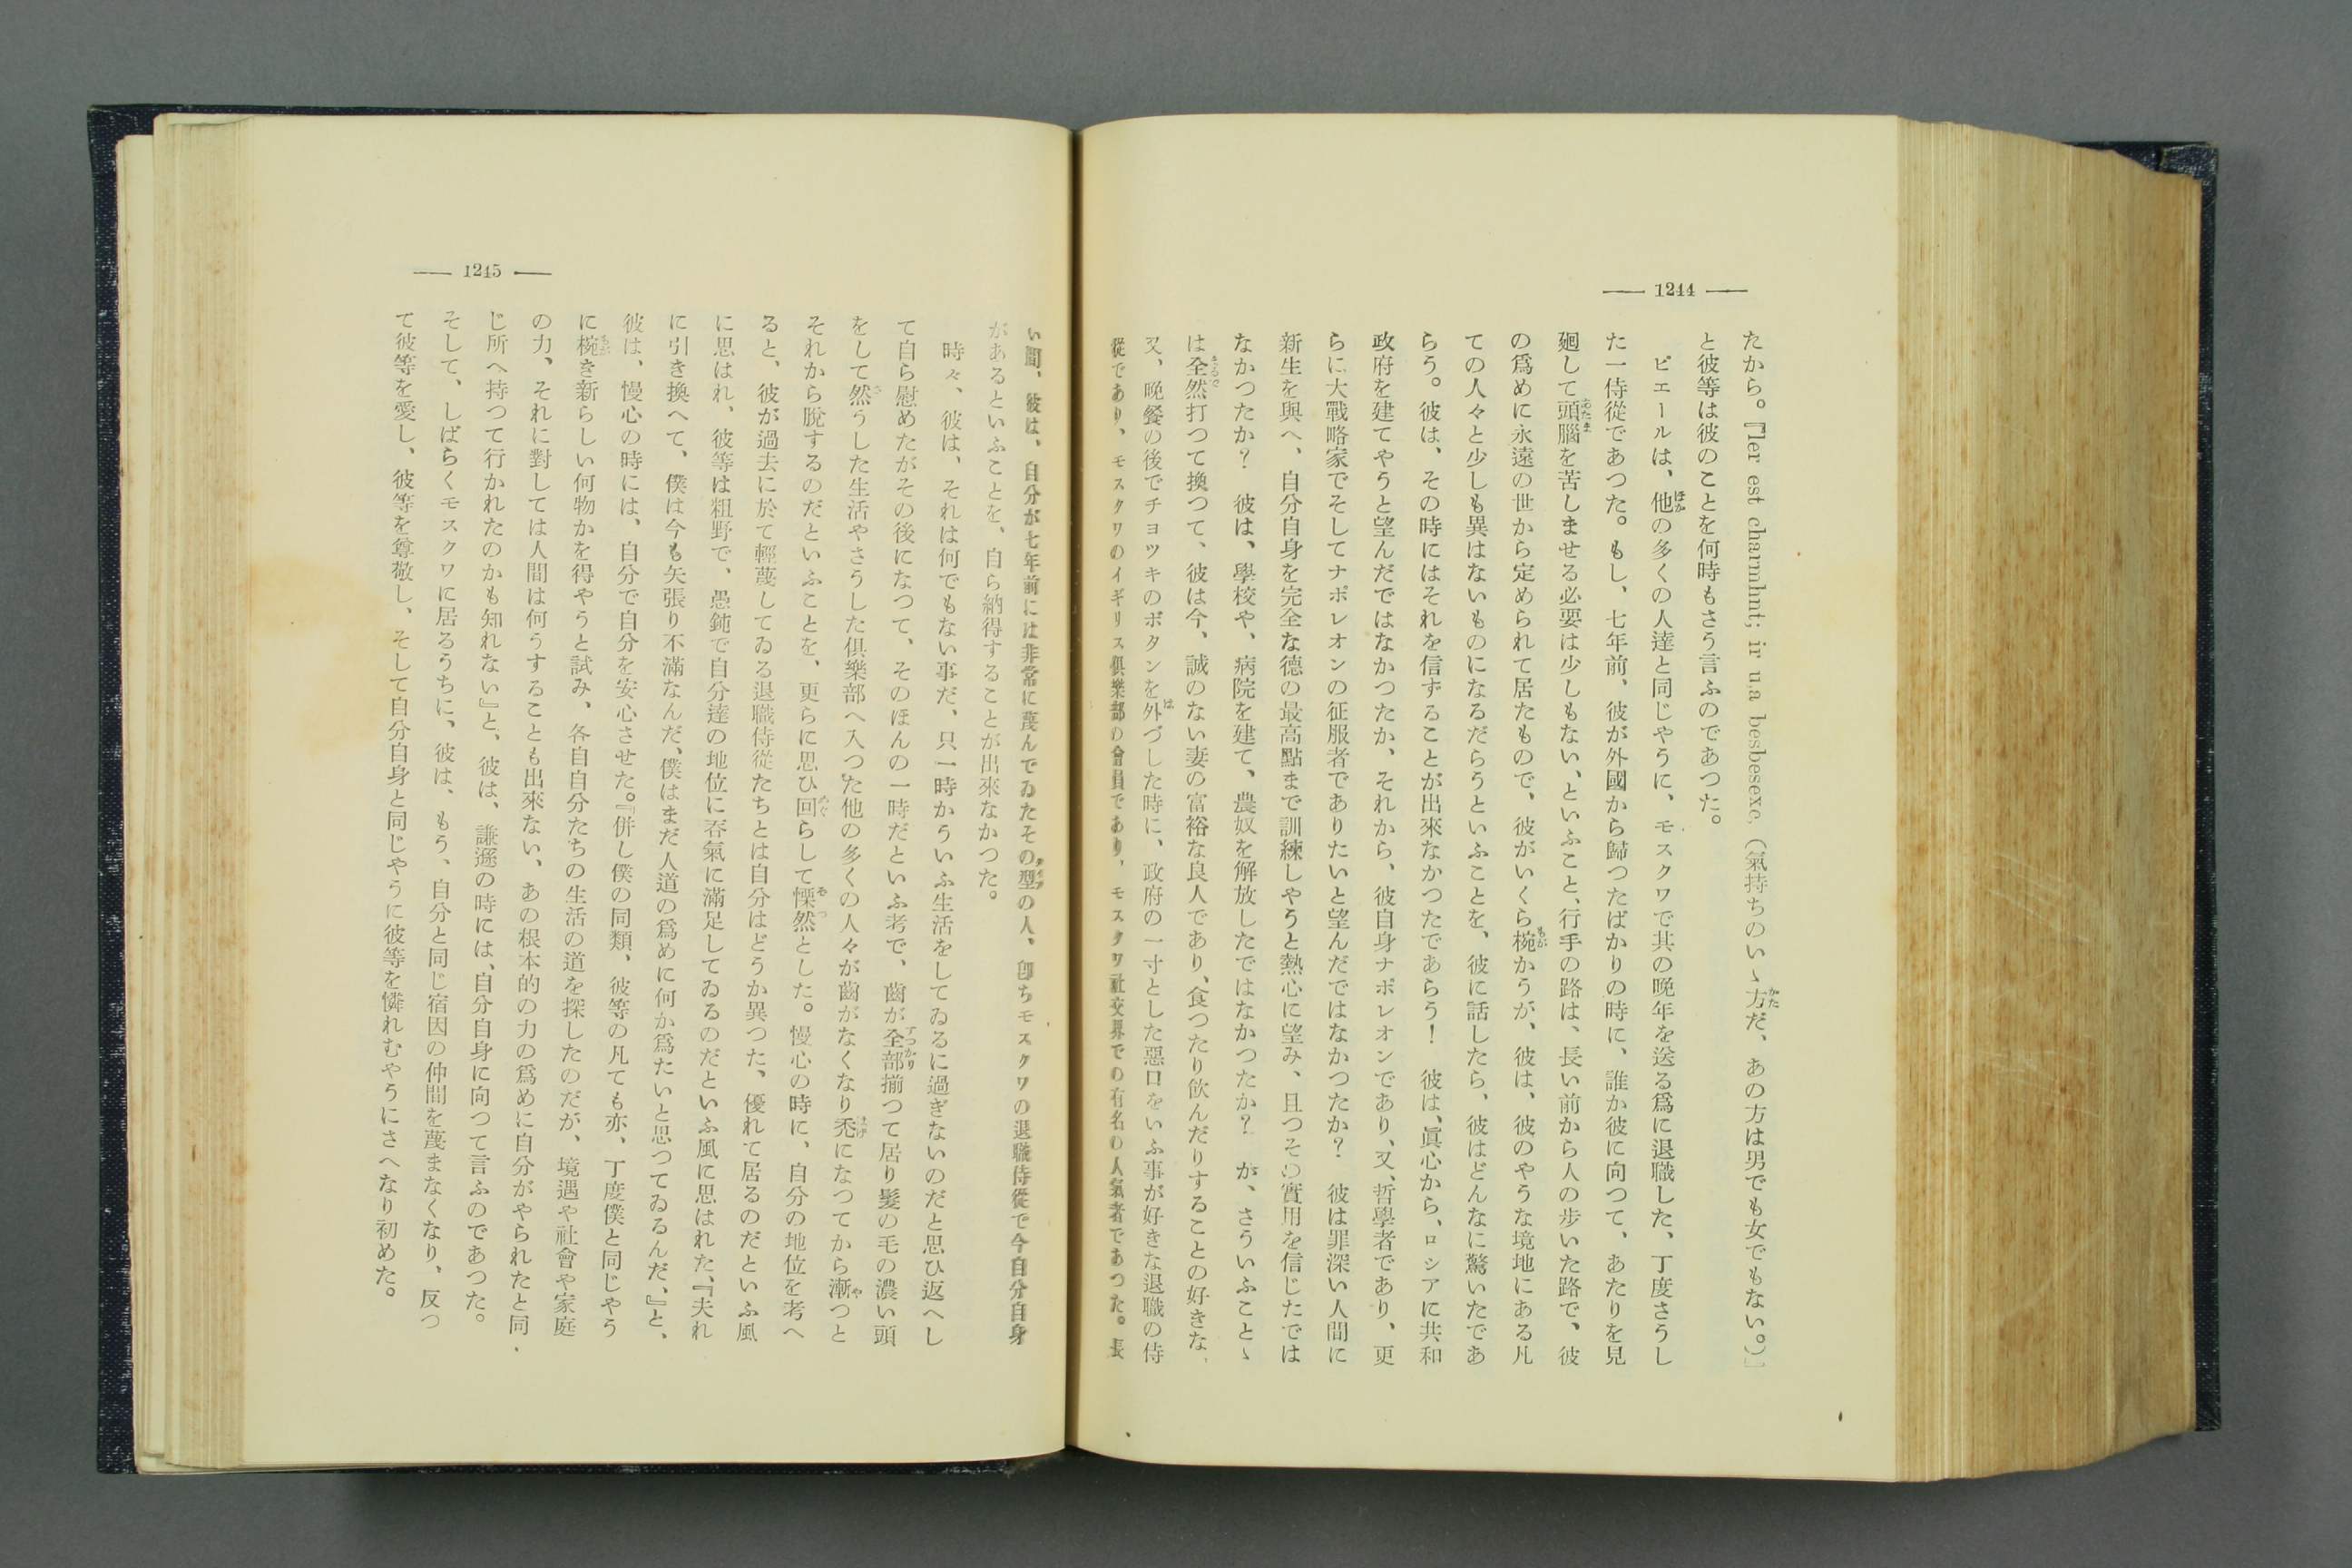 — 1244 —
たから。『ler est charmhnt; ir na besbesexe,（氣持ちのいゝ方だ、あの方は男でも女でもない。）』
と彼等は彼のことを何時もさう言ふのであつた。
ピエールは、他の多くの人達と同じやうに、モスクワで其の晩年を送る爲に退職した、丁度さうし
た一侍從であつた。もし、七年前、彼が外國から歸つたばかりの時に、誰か彼に向つて、あたりを見
廻して頭腦を苦しませる必要は少しもない、といふこと、行手の路は、長い前から人の歩いた路で、彼
の爲めに永遠の世から定められて居たもので、彼がいくら椀かうが、彼は、彼のやうな境地にある凡
ての人々と少しも異はないものになるだらうといふことを、彼に話したら、彼はどんなに驚いたであ
らう。彼は、その時にはそれを信ずることが出來なかつたであらう！　彼は、眞心から、ロシアに共和
政府を建てやうと望んだではなかつたか、それから、彼自身ナポレオンであり、又、哲學者であり、更
らに大戰略家でそしてナポレオンの征服者でありたいと望んだではなかつたか？　彼は罪深い人間に
新生を與へ、自分自身を完全な德の最高點まで訓練しやうと熱心に望み、且つその實用を信じたでは
なかつたか？　彼は、學校や、病院を建て、農奴を解放したではなかつたか？　が、さういふことゝ
は全然打つて換つて、彼は今、誠のない妻の富裕な良人であり、食つたり飮んだりすることの好きな、
又、晩餐の後でチヨツキのボタンを外づした時に、政府の一寸とした惡口をいふ事が好きな退職の侍
從であり、モスクワのイギリス俱樂部の會員であり、モスクワ社交界での有名の人氣者であつた。長
— 1245 —
い間、彼は、自分が七年前には非常に蔑んでゐたその型の人、卽ちモスクワの退職侍從で今自分自身
があるといふことを、自ら納得することが出來なかつた。
時々、彼は、それは何でもない事だ、只一時かういふ生活をしてゐるに過ぎないのだと思ひ返へし
て自ら慰めたがその後になつて、そのほんの一時だといふ考で、齒が全部揃つて居り髮の毛の濃い頭
をして然うした生活やさうした俱樂部へ入つた他の多くの人々が齒がなくなり禿になつてから漸つと
それから脫するのだといふことを、更らに思ひ回らして慄然とした。慢心の時に、自分の地位を考へ
ると、彼が過去に於て輕蔑してゐる退職侍從たちとは自分はどうか異つた、優れて居るのだといふ風
に思はれ、彼等は粗野で、愚鈍で自分達の地位に呑氣に滿足してゐるのだといふ風に思はれた、『夫れ
に引き換へて、僕は今も矢張り不滿なんだ、僕はまだ人道の爲めに何か爲たいと思つてゐるんだ、』と、
彼は、慢心の時には、自分で自分を安心させた。『併し僕の同類、彼等の凡ても亦、丁度僕と同じやう
に椀き新らしい何物かを得やうと試み、各自自分たちの生活の道を探したのだが、境遇や社會や家庭
の力、それに對しては人間は何うすることも出來ない、あの根本的の力の爲めに自分がやられたと同
じ所へ持つて行かれたのかも知れない』と、彼は、謙遜の時には、自分自身に向つて言ふのであつた。
そして、しばらくモスクワに居るうちに、彼は、もう、自分と同じ宿因の仲間を蔑まなくなり、反つ
て彼等を愛し、彼等を尊敬し、そして自分自身と同じやうに彼等を憐れむやうにさへなり初めた。